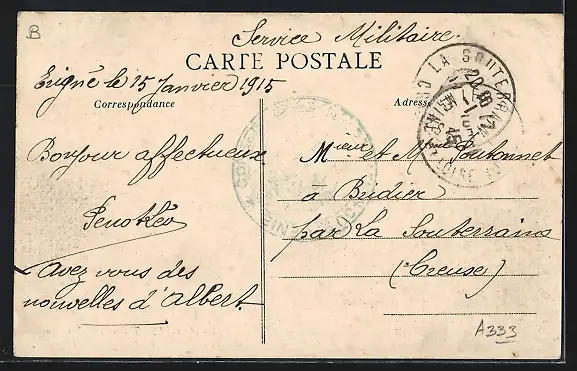 B
Service Militaire.
CARTE POSTALE
Évigné le 15 Janvier 1915
Correspondance
Adresse
LA SOUTERRAINE
Bonjour affectueux
Mieur et Mme Poutonnet
à Bridier
par La Souterraine
(Creuse)
Avez vous des
nouvelles d'Albert.
A333